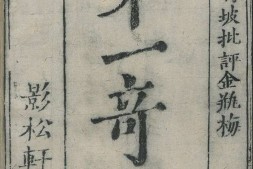 坡批評金瓶梅
才一奇
影松軒